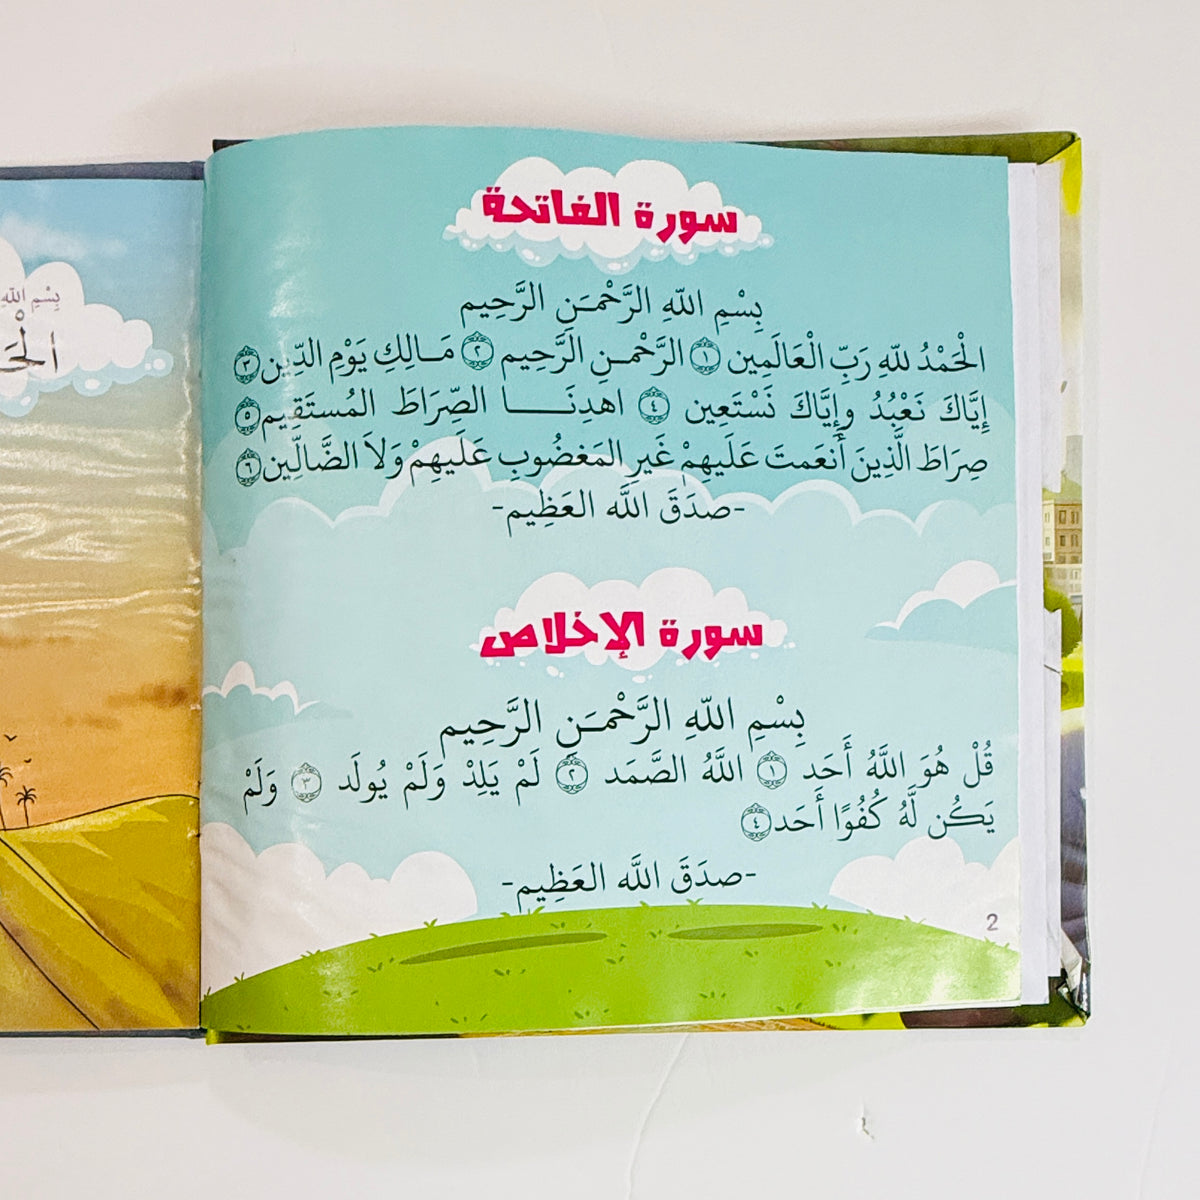 سورة الفاتحة
بِسْمِ اللّهِ الرَّحْمـَنِ الرَّحِيم
الْحَمْدُ للّهِ رَبِّ الْعَالَمِين ١ الرَّحْمـنِ الرَّحِيم ٢ مَـالِكِ يَوْمِ الدِّين ٣
إِيَّاكَ نَعْبُدُ وإِيَّاكَ نَسْتَعِين ٤ اهدِنَــــا الصِّرَاطَ المُستَقِيم ٥
صِرَاطَ الَّذِينَ أَنعَمتَ عَلَيهِمْ غَيرِ المَغضُوبِ عَلَيهِمْ وَلاَ الضَّالِّين ٦
-صدَقَ اللَّه العَظِيم-
سورة الإخلاص
بِسْمِ اللّهِ الرَّحْمـَنِ الرَّحِيم
قُلْ هُوَ اللَّهُ أَحَد ١ اللَّهُ الصَّمَد ٢ لَمْ يَلِدْ وَلَمْ يُولَد ٣ وَلَمْ
يَكُن لَّهُ كُفُوًا أَحَد ٤
-صدَقَ اللَّه العَظِيم-
2
بِسْمِ اللّهِ